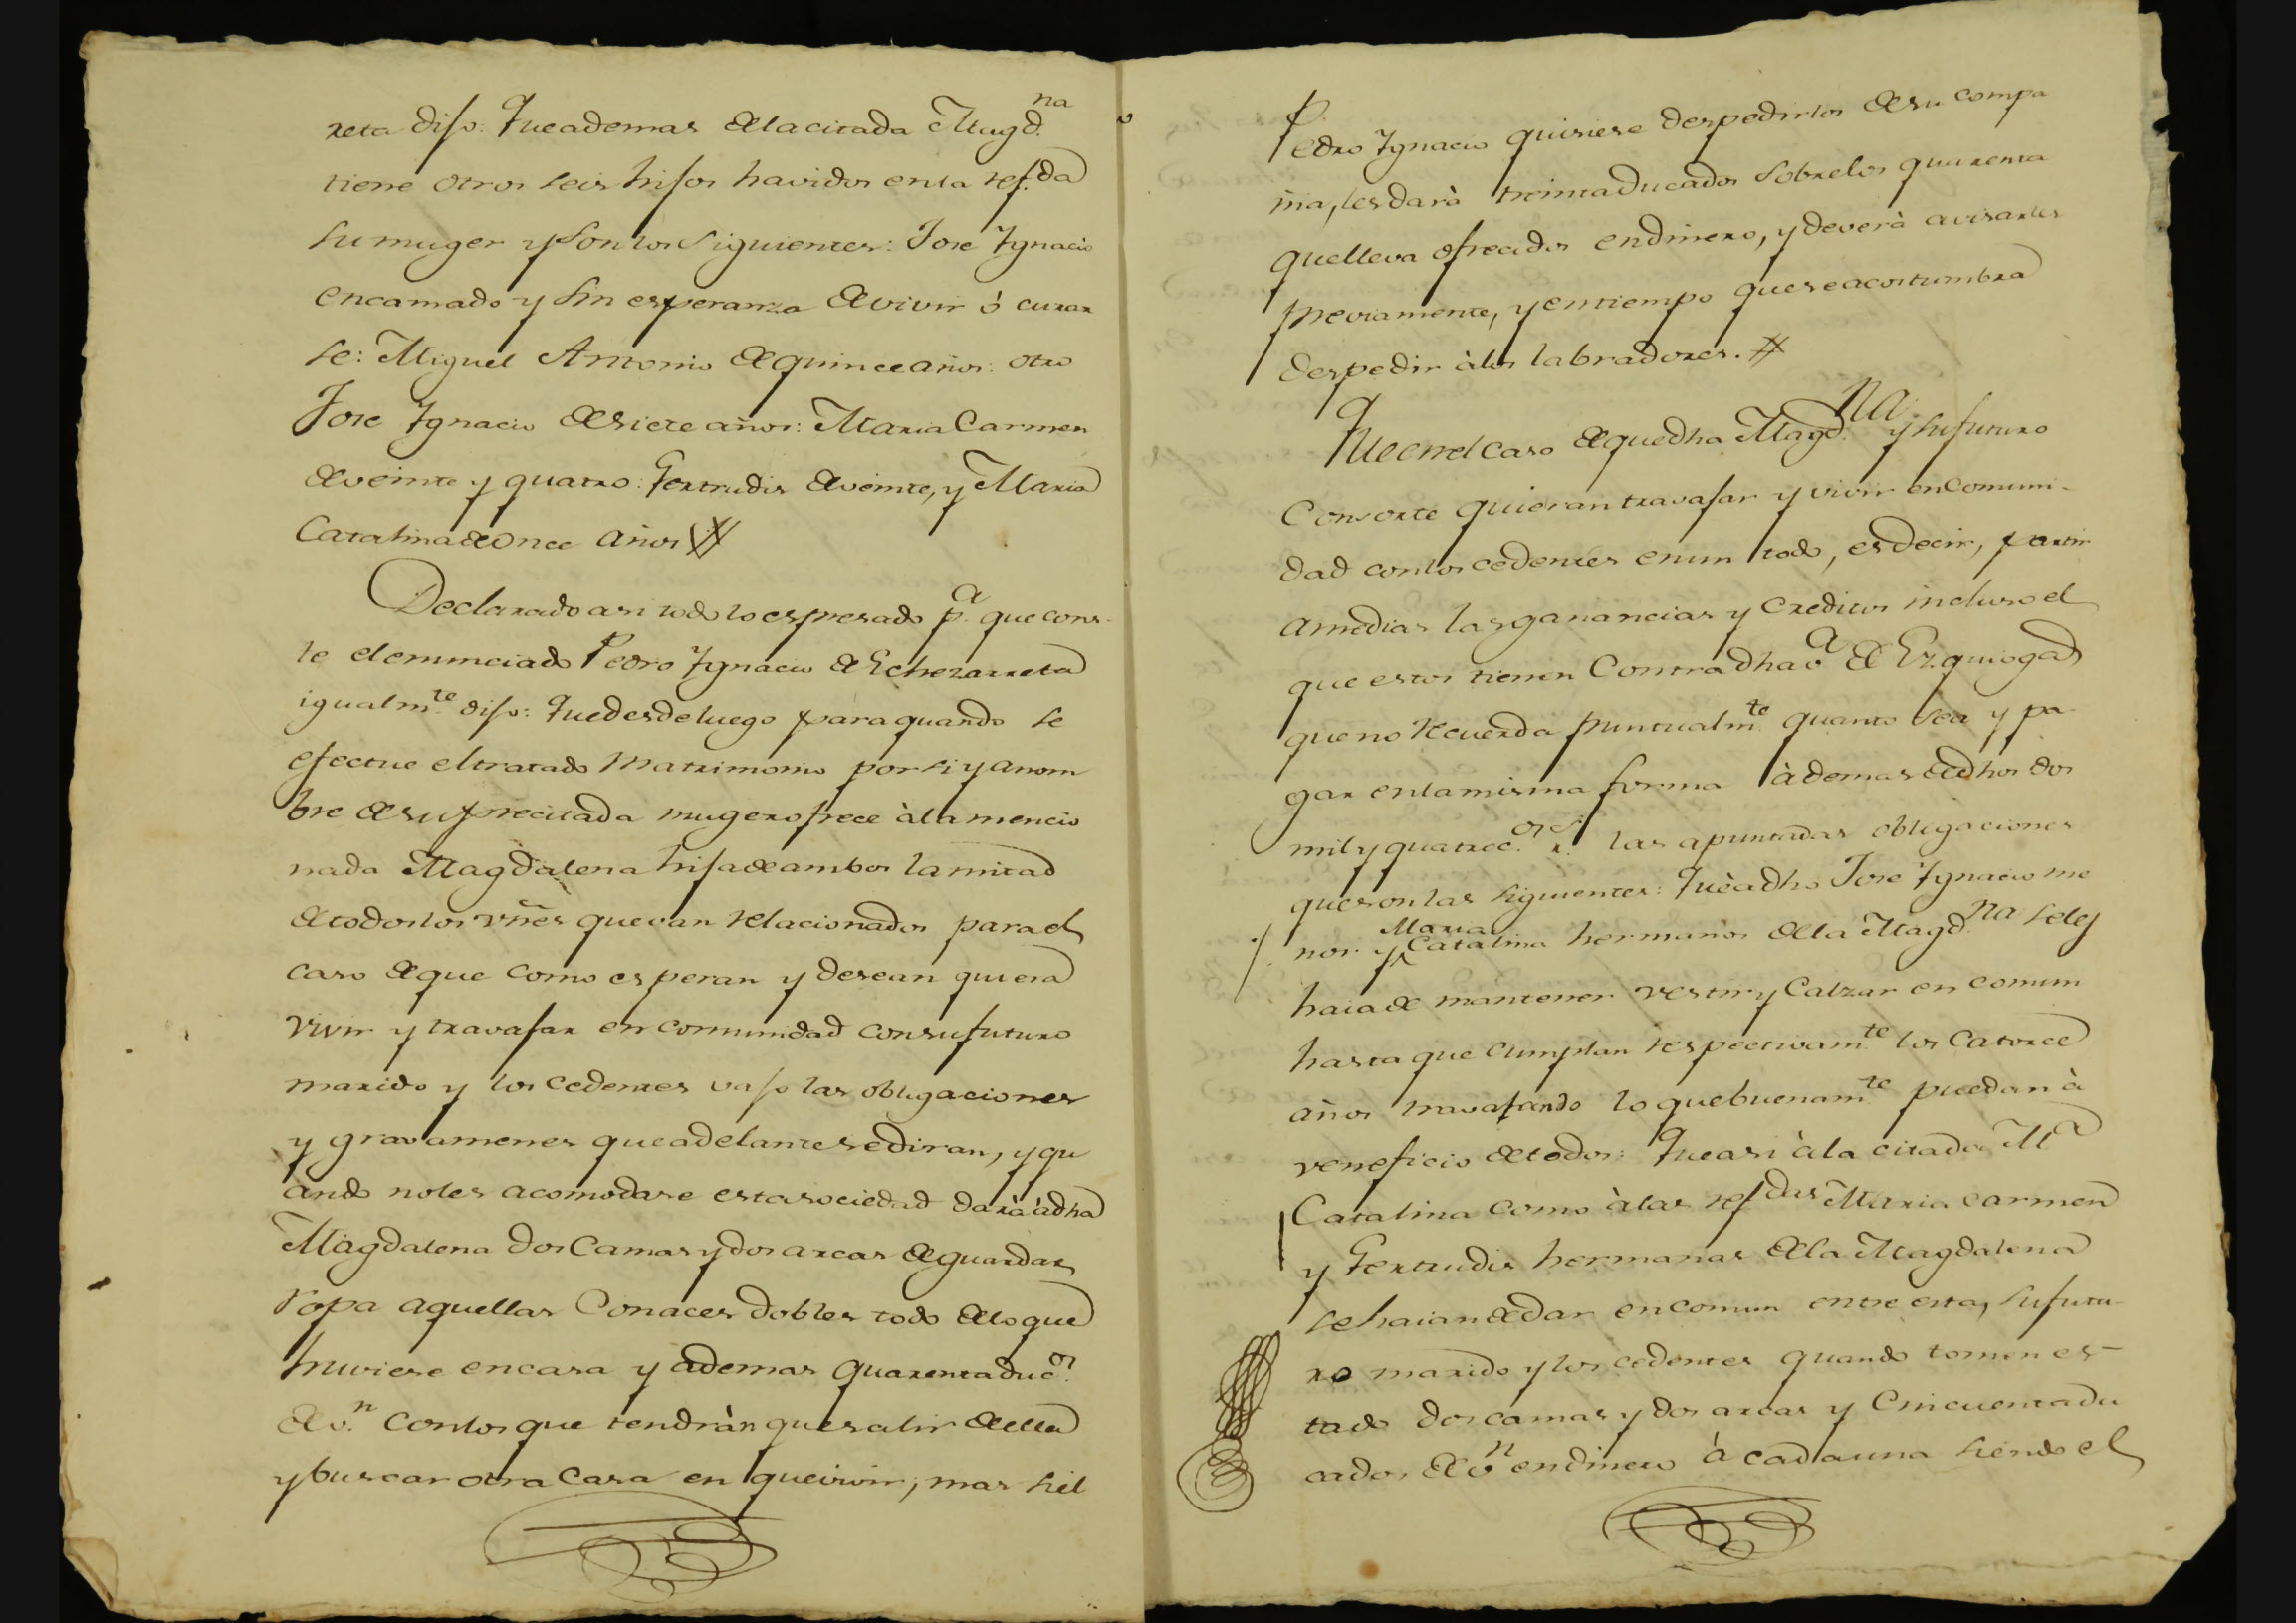 reta dijo: Que ademas de la citada Magd.na
tiene otros seis hijos havidos en la ref.da
su muger y son los siguientes: Jose Ygnacio
encamado y sin esperanza de vivir ó curar
se: Miguel Antonio de quince años: otro
Jose Ygnacio de siete años: Maria Carmen
de veinte y quatro: Gertrudis de veinte, y Maria
Catalina de once años
Declarado asi todo lo espresado p.a que cons-
te el enunciado Pedro Ygnacio de Echezarreta
igualm.te dijo: Que desde luego para quando se
efectue el tratado Matrimonio por si y a nom
bre de su precitada muger ofrece à la mencio
nada Magdalena hija de ambos la mitad
de todos los vñes que van relacionados para el
caso de que como esperan y desean quiera
vivir y travajar en comunidad con su futuro
marido y los cedentes vajo las obligaciones
y gravamenes que adelante se diran, y qu
ando no les acomodase esta sociedad darà à dha
Magdalena dos Camas y dos arcas de guardar
ropa aquellas con aces dobles todo de lo que
huviere en casa y ademas quarenta duc.os
de v.n con los que tendràn que salir de ella
y buscar otra Casa en que vivir; mas si el
Pedro Ygnacio quisiese despedirlos de su compa
ñia, les darà treinta ducados sobre los quarenta
que lleva ofrecidos en dinero, y deverà avisarles
previamente, y en tiempo que se acostumbra
despedir à los labradores.
Que en el caso de que dha Magd.na y su futuro
Consorte quieran travajar y vivir en comuni-
dad con los cedentes en un todo, es decir, partir
a medias las ganancias y creditos incluso el
que estos tienen contra dha v.a de Ezquioga
que no recuerda puntualm.te quanto sea y pa
gar en la misma forma à demas de dhos dos
mil y quatroc.os r.s las apuntadas obligaciones
que son las siguientes: Que à dho Jose Ygnacio me
nor y Maria Catalina hermanos de la Magd.na se les
haia de mantener vestir y Calzar en comun
hasta que cumplan respectivam.te los catorce
años travajando lo que buenam.te puedan à
veneficio de todos: Que asi à la citada M.a
Catalina como à las ref.das Maria Carmen
y Gertrudis hermanas de la Magdalena
se haian de dar en comun entre esta, su futu-
ro marido y los cedentes quando tomen es-
tado dos camas y dos arcas y cincuenta du
cados de v.n en dinero à cada una siendo el